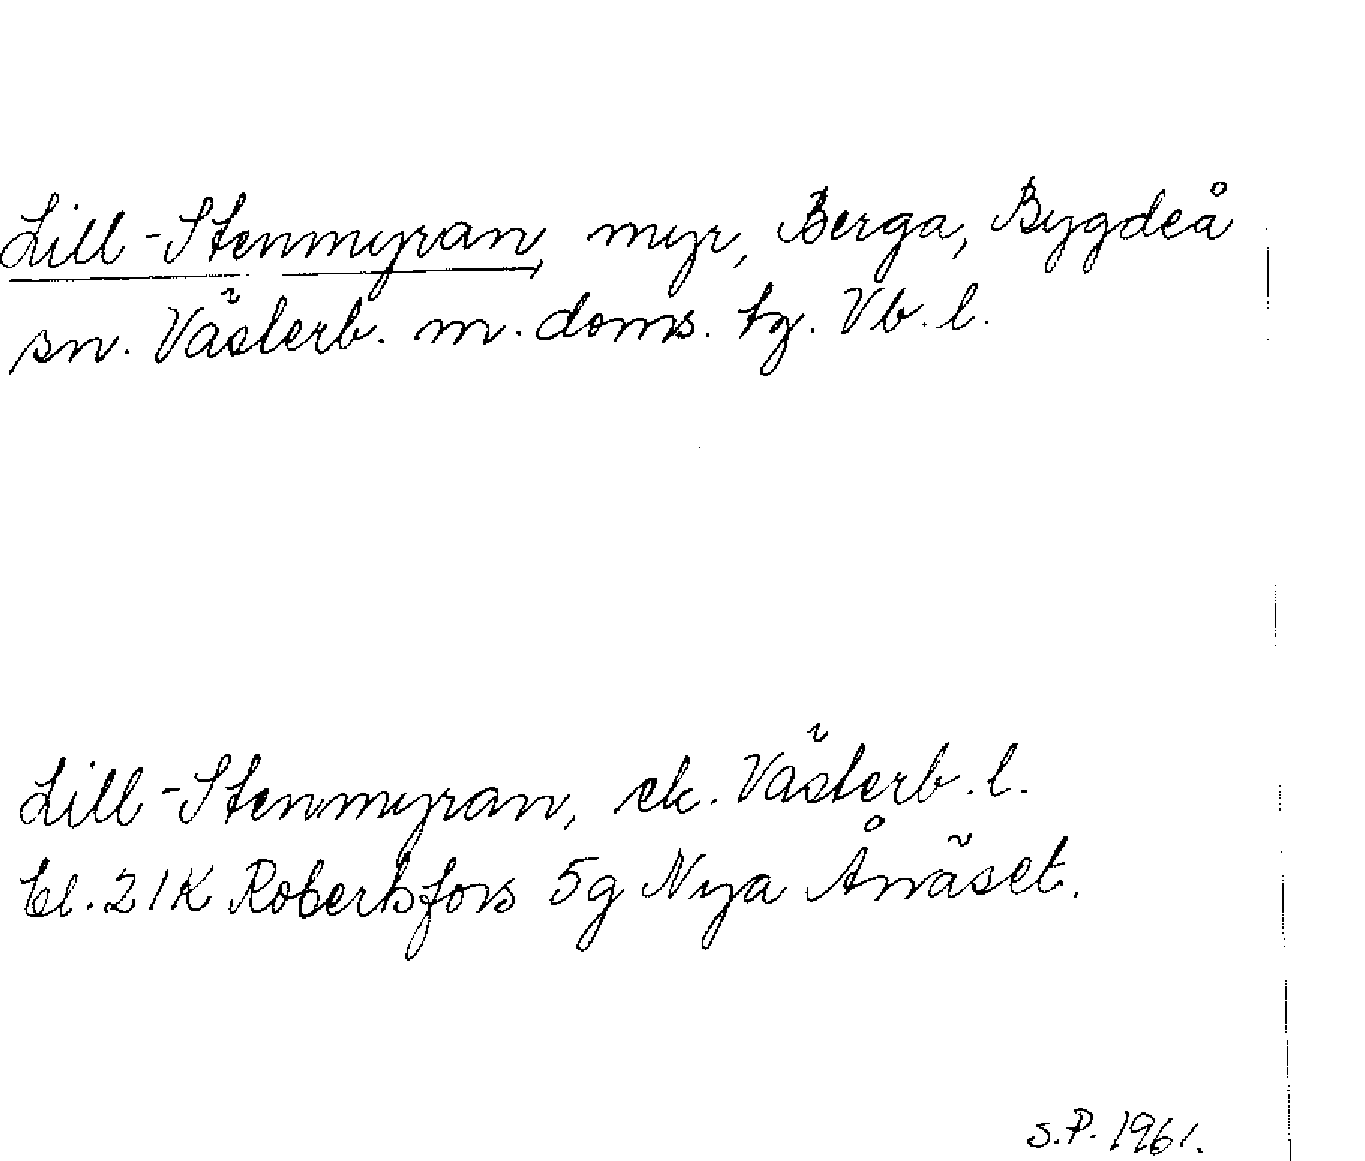 Lill-Stenmyran, myr, Berga, Bygdeå
sn. Västerb. m. doms. tg. Vb. l.
Lill-Stenmyran, ek. Västerb. l.
bl. 21K Robertsfors 5g Nya Ånäset.
S.P. 1961.